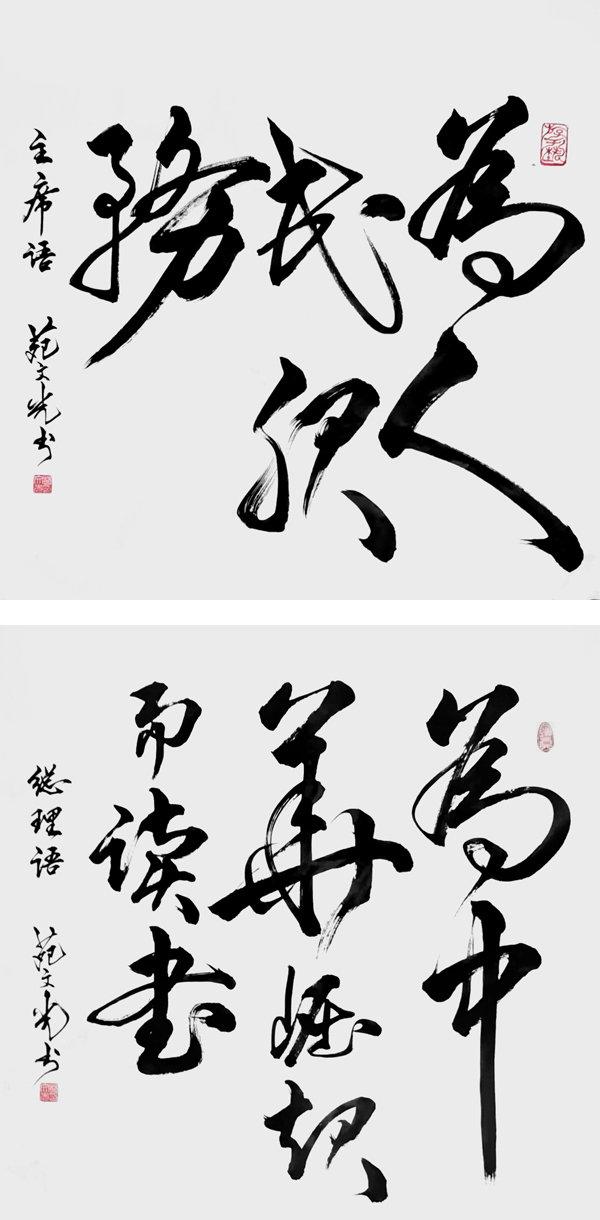 為人
民服
務
主席语 文光书
為中
華崛起
而读书
總理语 文书